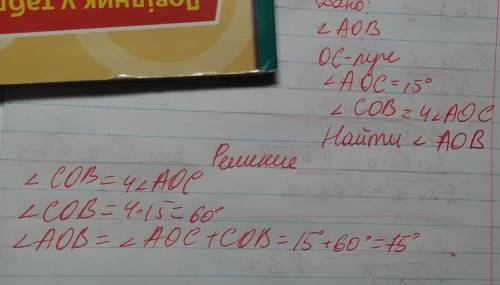 Довідник у табл
Дано:
∠AOB
OC-луч
∠AOC=15°
∠COB=4∠AOC
Найти ∠AOB
Решение
∠COB=4∠AOC
∠COB=4·15=60°
∠AOB=∠AOC+COB=15°+60°=75°